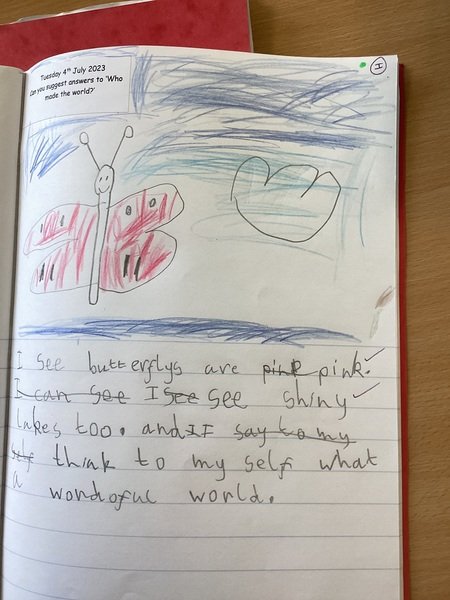 Tuesday 4th July 2023
Can you suggest answers to 'Who
made the world?'
H
I see butterflys are pink pink.
I can see I see see shiny
lakes too. and IF say to my
self think to my self what
a wondoful world.